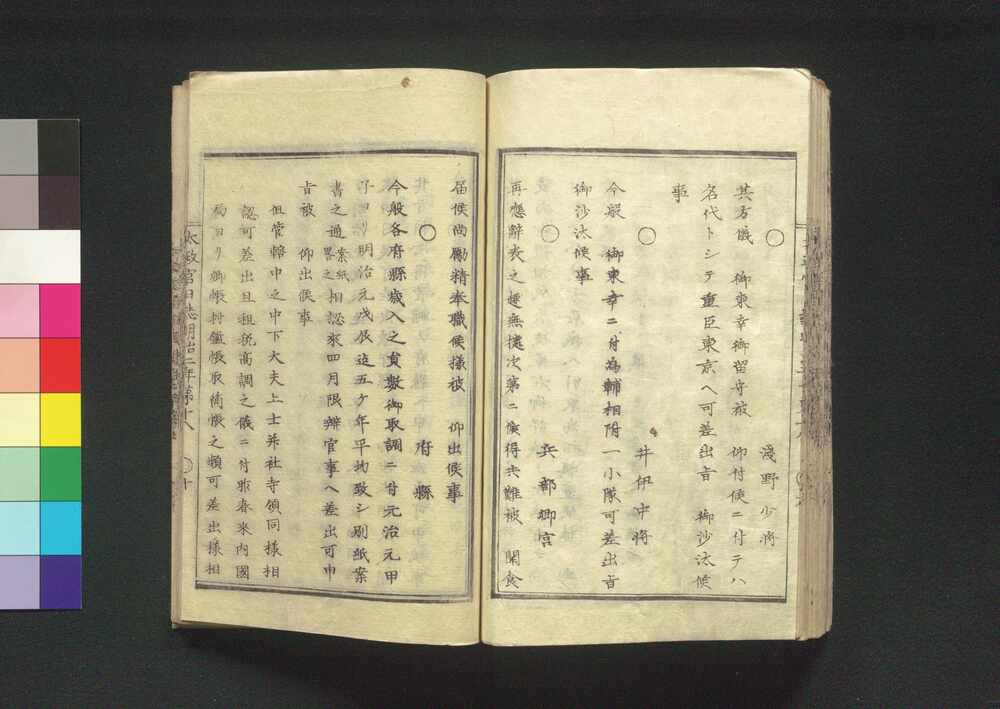 ○
淺野少將
其方儀 御東幸御留守被 仰付候ニ付テハ
名代トシテ重臣東京ヘ可差出旨 御沙汰候
事
○
井伊中將
今般 御東幸ニ付為輔相附一小隊可差出旨
御沙汰候事
○
兵部卿宮
再應辭表之趣無據次第ニ候得共難被 聞食
届候尚勵精奉職候樣被 仰出候事
○
府縣
今般各府縣歳入之貢數御取調ニ付元治元甲
子ヨリ明治元戊辰迄五ケ年平均致シ別紙案
書之通案紙畧之相認來四月限辨官事ヘ差出可申
旨被 仰出候事
但管轄中之中下大夫上士并社寺領同樣相
認可差出且租税高調之儀ニ付昨春来内國
局ヨリ郷帳村鑑帳取箇帳之類可差出樣相
太政官日誌明治二年第十八
○十